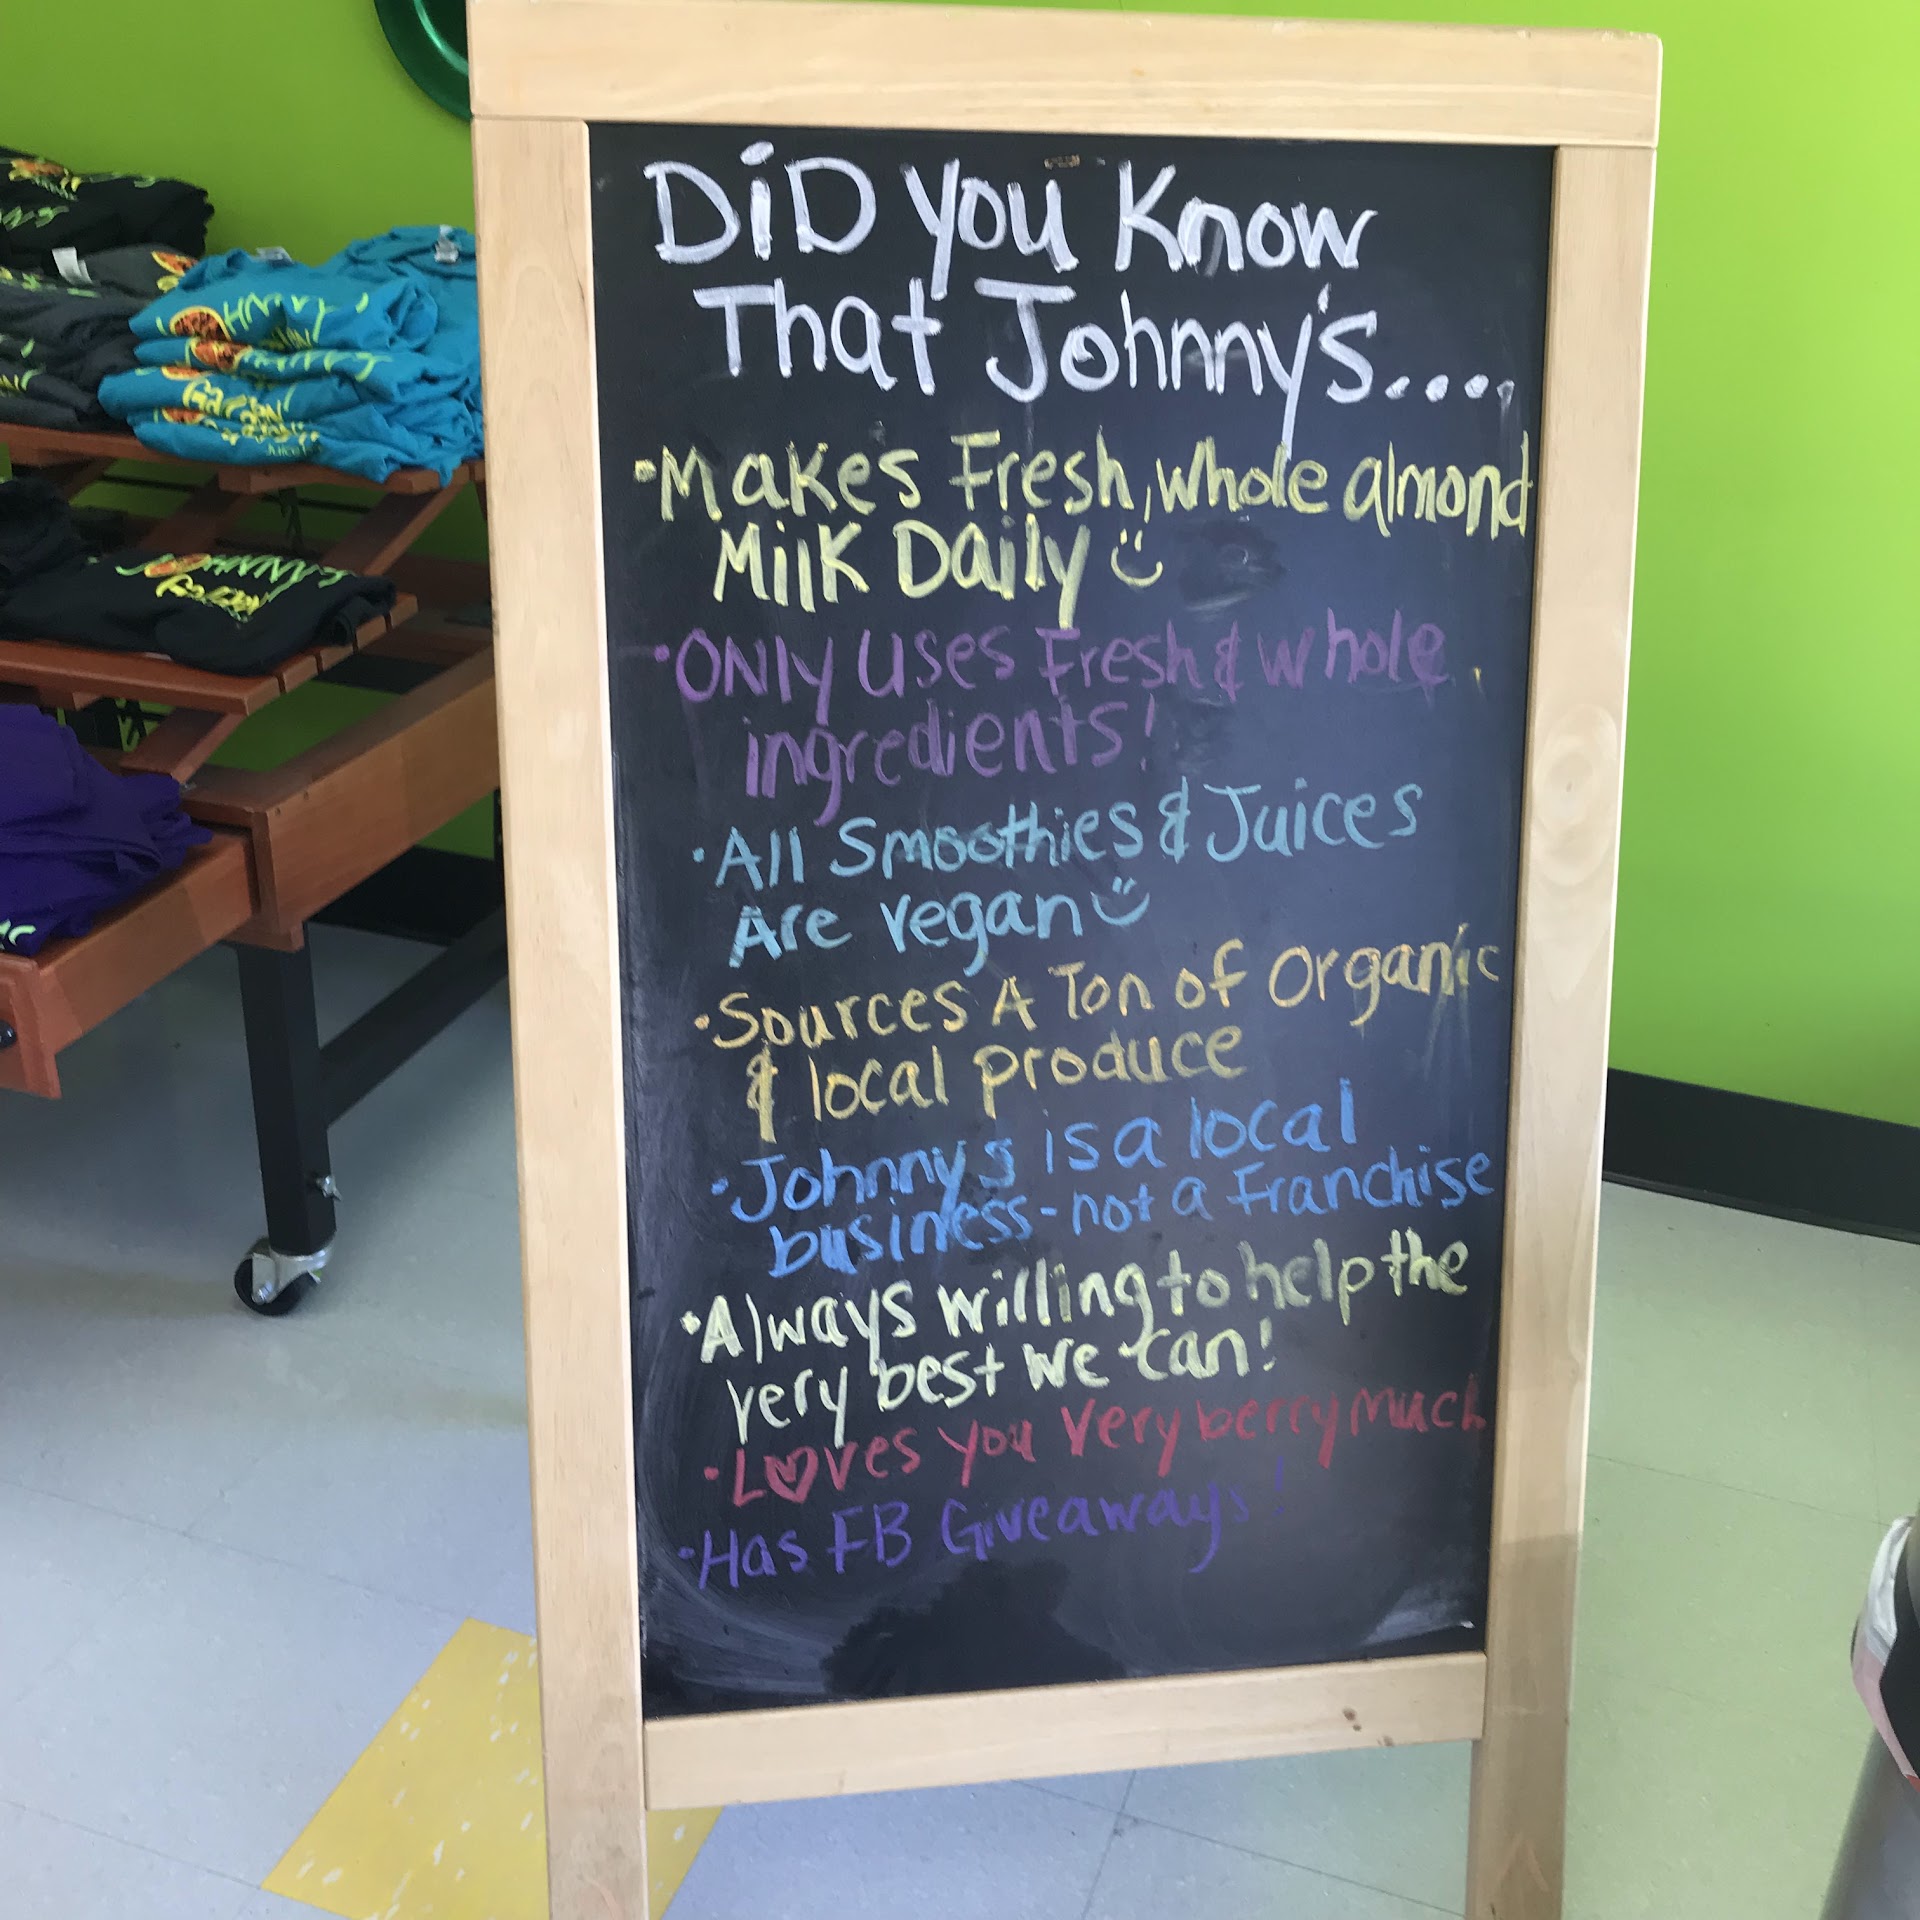 DiD you Know
That Johnny's....
•Makes Fresh, whole almond
Milk Daily
•ONLY uses Fresh & whole
ingredients!
•All Smoothies & Juices
Are vegan
•Sources A Ton of Organic
& local produce
•Johnny's is a local
business-not a Franchise
•Always willing to help the
very best we can!
•Loves you very berry much
•Has FB Giveaways!
JOHNNY'S
JOHNNY'S
Garden
JUICE
JOHNNY'S
Garden